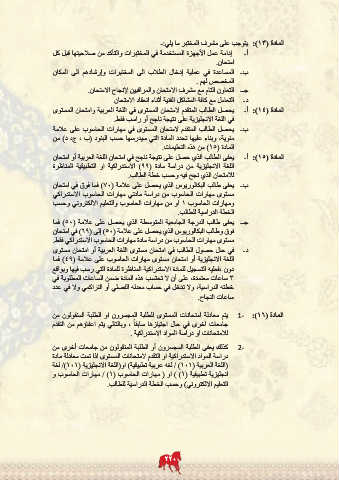 المادة (١٣): يتوجب على مشرف المختبر ما يلي:-
أ- إدامة عمل الأجهزة المستخدمة في المختبرات والتأكد من صلاحيتها قبل كل
امتحان.
ب- المساعدة في عملية إدخال الطلاب الى المختبرات وإرشادهم الى المكان
المخصص لهم.
جـ- التعاون التام مع مشرف الامتحان والمراقبين لإنجاح الامتحان.
د- التعامل مع كافة المشاكل الفنية أثناء انعقاد الامتحان.
المادة (١٤): أ- يحصل الطالب المتقدم لامتحان المستوى في اللغة العربية وامتحان المستوى
في اللغة الانجليزية على نتيجة ناجح أو راسب فقط.
ب- يحصل الطالب المتقدم لامتحان المستوى في مهارات الحاسوب على علامة
مئوية، وبناء عليها تحدد المادة التي سيدرسها حسب البنود (ب ، ج، د) من
المادة (١٥) من هذه التعليمات.
المادة (١٥): أ- يعفى الطالب الذي حصل على نتيجة ناجح في امتحان اللغة العربية أو امتحان
اللغة الانجليزية من دراسة مادة (٩٩) الاستدراكية أو التطبيقية المناظرة
للامتحان الذي نجح فيه وحسب خطة الطالب.
ب- يعفى طالب البكالوريوس الذي يحصل على علامة (٧٠) فما فوق في امتحان
مستوى مهارات الحاسوب من دراسة مادتي مهارات الحاسوب الاستدراكي
ومهارات الحاسوب ١ أو من مهارات الحاسوب والتعليم الإلكتروني وحسب
الخطة الدراسية للطالب.
جـ- يعفى طالب الدرجة الجامعية المتوسطة الذي يحصل على علامة (٥٠) فما
فوق وطالب البكالوريوس الذي يحصل على علامة (٥٠) إلى (٦٩) في امتحان
مستوى مهارات الحاسوب من دراسة مادة مهارات الحاسوب الاستدراكي فقط.
د- في حال حصول الطالب في امتحان مستوى اللغة العربية أو امتحان مستوى
اللغة الانجليزية أو امتحان مستوى مهارات الحاسوب على علامة (٤٩) فما
دون فعليه التسجيل للمادة الاستدراكية المناظرة للمادة التي رسب فيها وبواقع
٣ ساعات معتمدة، على أن لا تحتسب هذه المادة ضمن الساعات المطلوبة في
خطته الدراسية، ولا تدخل في حساب معدله الفصلي أو التراكمي ولا في عدد
ساعات النجاح.
المادة (١٦): 1- يتم معادلة امتحانات المستوى للطلبة المجسرون او الطلبة المنقولون من
جامعات اخرى في حال اجتيازها سابقاً ، وبالتالي يتم اعفاؤهم من التقدم
للامتحانات او دراسة المواد الاستدراكية .
2- كذلك يعفى الطلبة المجسرون أو الطلبة المنقولون من جامعات أخرى من
دراسة المواد الاستدراكية او التقدم لامتحانات المستوى اذا تمت معادلة مادة
(اللغة العربية (١٠١) / لغة عربية تطبيقية) او(اللغة الانجليزية (١٠١)/ لغة
انجليزية تطبيقية (١) ) او ( مهارات الحاسوب (١) / مهارات الحاسوب و
التعليم الإلكتروني) وحسب الخطة الدراسية للطالب.